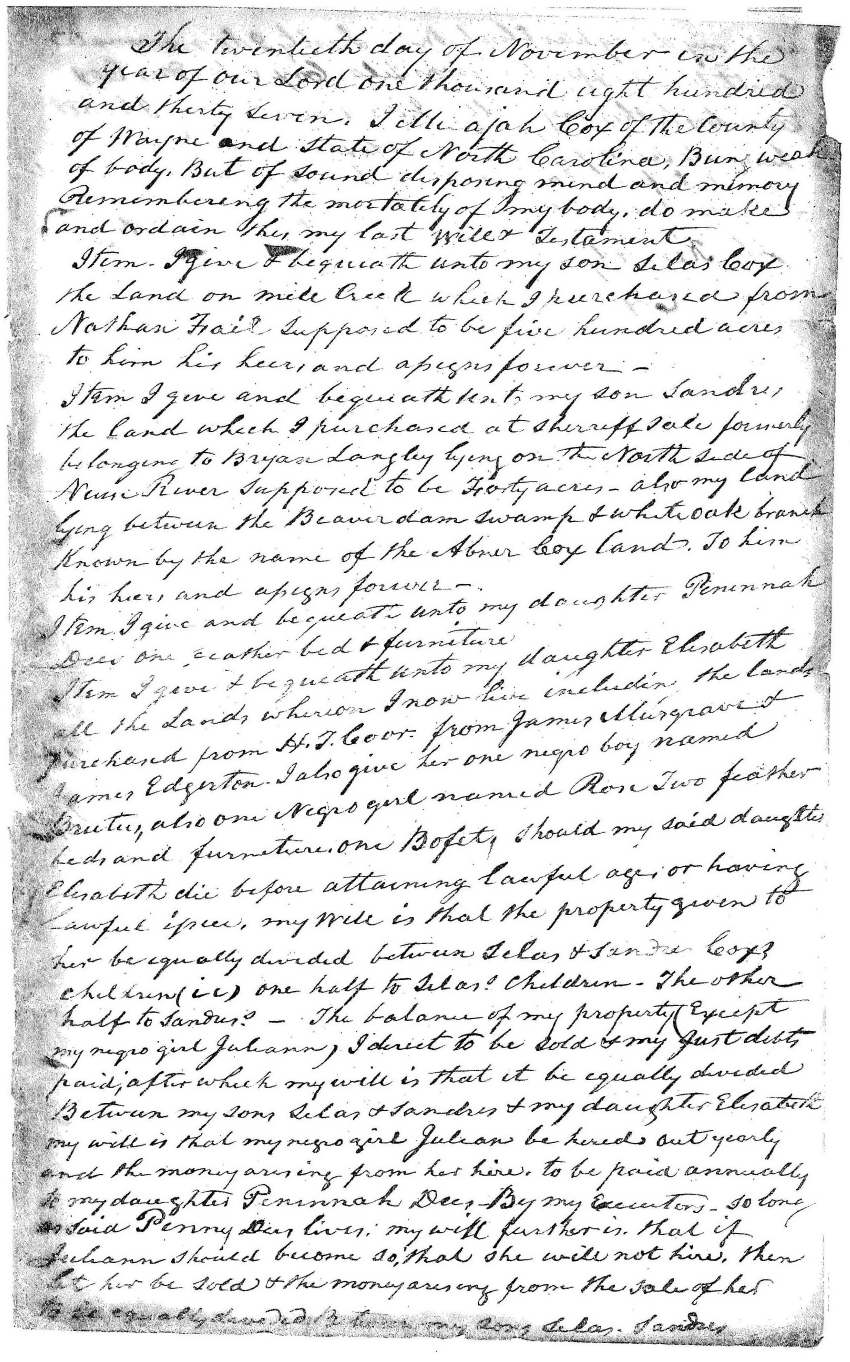 The twentieth day of November in the
year of our Lord one thousand eight hundred
and thirty seven. I Micajah Cox of the County
of Wayne and State of North Carolina, Bing weak
of body. But of sound disposing mind and memory
Remembering the mortality of my body. do make
and ordain this my last Will & Testament.
Item. I give & bequeath unto my son Silas Cox
the Land on mill Creek which I purchased from
Nathan supposed to be five hundred acres
to him his heirs and assigns forever –
Item I give and bequeath unto my son Sandres
the land which I purchased at Sherreff sale formerly
belonging to Bryan Langley lying on the North side of
Neuse River supposed to be Forty acres – also my land
lying between the Beaverdam swamp & white oak branch
Known by the name of the Abner Cox land. To him
his heirs and assigns forever –
Item I give and bequeath unto my daughter Peninnah
Dees one feather bed & furniture
Item I give & bequeath unto my daughter Elisabeth
all the Lands whereon I now live including the lands
purchased from H. T. Coor. from James Musgrave &
James Edgerton. I also give her one negro boy named
Brutus, also one Negro girl named Rose Two feather
beds and furniture, one Bofet, should my said daughter
Elisabeth die before attaining lawful age, or having
Lawful issue, my will is that the property given to
her be equally divided between Silas & Sandres Cox's
children (ie) one half to Silas's children – The other
half to Sandres's – The balance of my property (Except
my negro girl Juliann) I direct to be sold & my Just debts
paid, after which my will is that it be equally divided
Between my sons Silas & Sandres & my daughter Elisabeth
my will is that my negro girl Julian be hired out yearly
and the money arising from her hire. to be paid annually
to my daughter Peninnah Dees – By my Executors – so long
as said Penny Dees lives: my will further is. that if
Juliann should become so, that she will not hire, then
let her be sold & the money arising from the sale of her
to be equally divided Between my sons Silas. Sandres